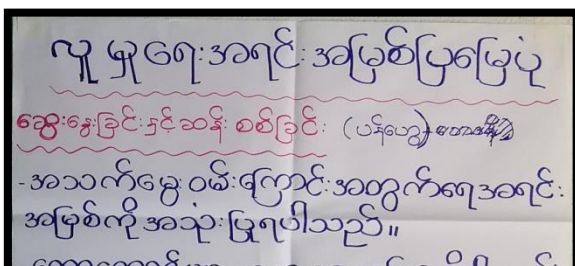 လူမှုရေးအရင်းအမြစ်ပြမြေပုံ
ဆွေးနွေးခြင်းနှင့်ဆန်းစစ်ခြင်း (ပန်ဟွေ)
-အသက်မွေးဝမ်းကြောင်းအတွက်ရေအရင်း
အမြစ်ကိုအသုံးပြုရပါသည်။